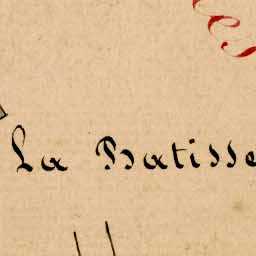 La Batisse